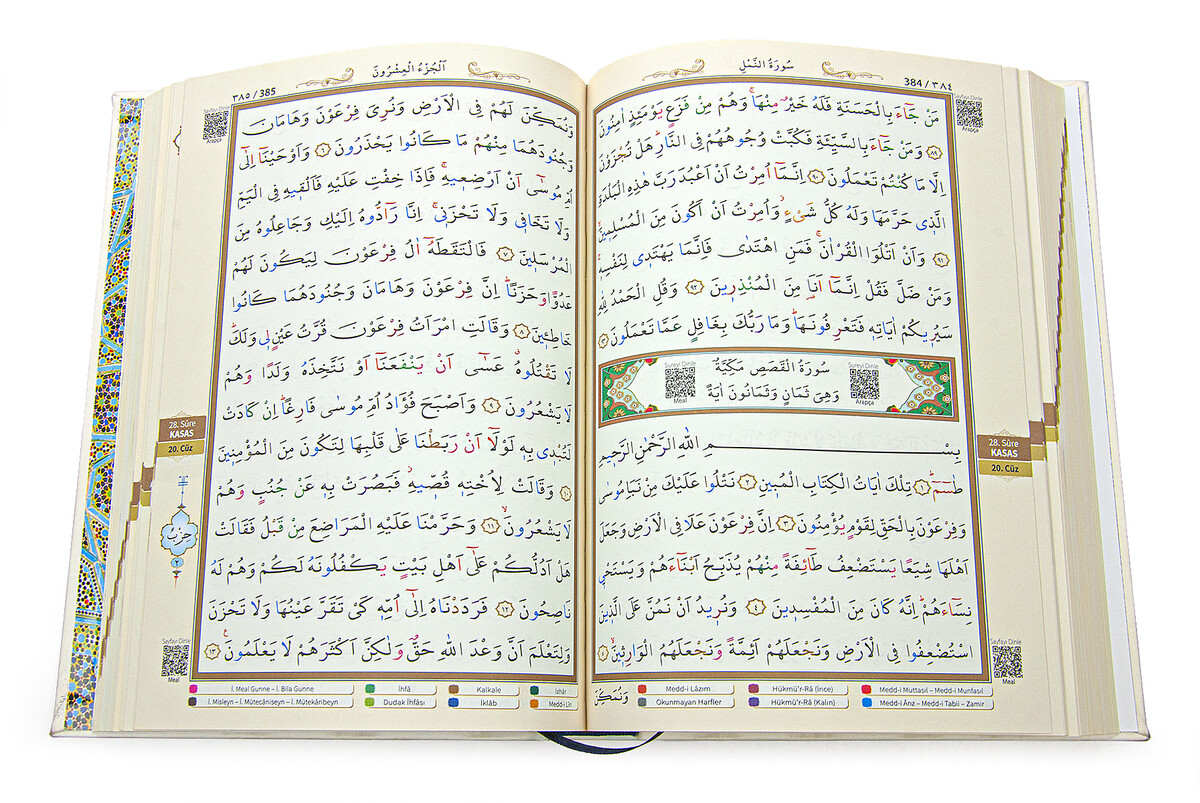 384 / ٣٨٤
سُورَةُ النَّمْلِ
Sayfayı Dinle
Arapça
مَنْ جَٓاءَ بِالْحَسَنَةِ فَلَهُ خَيْرٌ مِنْهَاۚ وَهُمْ مِنْ فَزَعٍ يَوْمَئِذٍ اٰمِنُونَ
﴿٨٩﴾ وَمَنْ جَٓاءَ بِالسَّيِّئَةِ فَكُبَّتْ وُجُوهُهُمْ فِي النَّارِۜ هَلْ تُجْزَوْنَ
اِلَّا مَا كُنْتُمْ تَعْمَلُونَ ﴿٩٠﴾ اِنَّمَٓا اُمِرْتُ اَنْ اَعْبُدَ رَبَّ هٰذِهِ الْبَلْدَةِ
الَّذٖي حَرَّمَهَا وَلَهُ كُلُّ شَيْءٍۘ وَاُمِرْتُ اَنْ اَكُونَ مِنَ الْمُسْلِمٖينَۙ
﴿٩١﴾ وَاَنْ اَتْلُوَا الْقُرْاٰنَۚ فَمَنِ اهْتَدٰى فَاِنَّمَا يَهْتَدٖي لِنَفْسِهٖۚ
وَمَنْ ضَلَّ فَقُلْ اِنَّمَٓا اَنَا۬ مِنَ الْمُنْذِرٖينَ ﴿٩٢﴾ وَقُلِ الْحَمْدُ لِلّٰهِ
سَيُرٖيكُمْ اٰيَاتِهٖ فَتَعْرِفُونَهَاۜ وَمَا رَبُّكَ بِغَافِلٍ عَمَّا تَعْمَلُونَ ﴿٩٣﴾
سُورَةُ الْقَصَصِ مَكِّيَّةٌ
وَهِيَ ثَمَانٍ وَثَمَانُونَ اٰيَةً
Sureyi Dinle
Meal
Sureyi Dinle
Arapça
بِسْمِ اللّٰهِ الرَّحْمٰنِ الرَّحٖيمِ
طٰسٓمٓ ﴿١﴾ تِلْكَ اٰيَاتُ الْكِتَابِ الْمُبٖينِ ﴿٢﴾ نَتْلُوا عَلَيْكَ مِنْ نَبَأِ مُوسٰى
وَفِرْعَوْنَ بِالْحَقِّ لِقَوْمٍ يُؤْمِنُونَ ﴿٣﴾ اِنَّ فِرْعَوْنَ عَلَا فِي الْاَرْضِ وَجَعَلَ
اَهْلَهَا شِيَعًا يَسْتَضْعِفُ طَٓائِفَةً مِنْهُمْ يُذَبِّحُ اَبْنَٓاءَهُمْ وَيَسْتَحْيٖ
نِسَٓاءَهُمْۜ اِنَّهُ كَانَ مِنَ الْمُفْسِدٖينَ ﴿٤﴾ وَنُرٖيدُ اَنْ نَمُنَّ عَلَى الَّذٖينَ
اسْتُضْعِفُوا فِي الْاَرْضِ وَنَجْعَلَهُمْ اَئِمَّةً وَنَجْعَلَهُمُ الْوَارِثٖينَۙ ﴿٥﴾
وَنُمَكِّنَ
28. Sûre
KASAS
20. Cüz
Sayfayı Dinle
Meal
Medd-i Lâzım
Hükmü'r-Râ (İnce)
Medd-i Muttasıl – Medd-i Munfasıl
Okunmayan Harfler
Hükmü'r-Râ (Kalın)
Medd-i Ârız – Medd-i Tabii – Zamir
اَلْجُزْءُ الْعِشْرُونَ
٣٨٥ / 385
Sayfayı Dinle
Arapça
وَنُمَكِّنَ لَهُمْ فِي الْاَرْضِ وَنُرِيَ فِرْعَوْنَ وَهَامَانَ
وَجُنُودَهُمَا مِنْهُمْ مَا كَانُوا يَحْذَرُونَ ﴿٦﴾ وَاَوْحَيْنَٓا اِلٰٓى
اُمِّ مُوسٰٓى اَنْ اَرْضِعٖيهِۚ فَاِذَا خِفْتِ عَلَيْهِ فَاَلْقٖيهِ فِي الْيَمِّ
وَلَا تَخَافٖي وَلَا تَحْزَنٖيۚ اِنَّا رَٓادُّوهُ اِلَيْكِ وَجَاعِلُوهُ مِنَ
الْمُرْسَلٖينَ ﴿٧﴾ فَالْتَقَطَهُٓ اٰلُ فِرْعَوْنَ لِيَكُونَ لَهُمْ
عَدُوًّا وَحَزَنًاۜ اِنَّ فِرْعَوْنَ وَهَامَانَ وَجُنُودَهُمَا كَانُوا
خَاطِـٖٔينَ ﴿٨﴾ وَقَالَتِ امْرَاَتُ فِرْعَوْنَ قُرَّتُ عَيْنٍ لٖي وَلَكَۜ
لَا تَقْتُلُوهُۗ عَسٰٓى اَنْ يَنْفَعَنَٓا اَوْ نَتَّخِذَهُ وَلَدًا وَهُمْ
لَا يَشْعُرُونَ ﴿٩﴾ وَاَصْبَحَ فُؤٰادُ اُمِّ مُوسٰى فَارِغًاۜ اِنْ كَادَتْ
لَتُبْدٖي بِهٖ لَوْلَٓا اَنْ رَبَطْنَا عَلٰى قَلْبِهَا لِتَكُونَ مِنَ الْمُؤْمِنٖينَ
﴿١٠﴾ وَقَالَتْ لِاُخْتِهٖ قُصّٖيهِؗ فَبَصُرَتْ بِهٖ عَنْ جُنُبٍ وَهُمْ
لَا يَشْعُرُونَۙ ﴿١١﴾ وَحَرَّمْنَا عَلَيْهِ الْمَرَاضِعَ مِنْ قَبْلُ فَقَالَتْ
هَلْ اَدُلُّكُمْ عَلٰٓى اَهْلِ بَيْتٍ يَكْفُلُونَهُ لَكُمْ وَهُمْ لَهُ
نَاصِحُونَ ﴿١٢﴾ فَرَدَدْنَاهُ اِلٰٓى اُمِّهٖ كَيْ تَقَرَّ عَيْنُهَا وَلَا تَحْزَنَ
وَلِتَعْلَمَ اَنَّ وَعْدَ اللّٰهِ حَقٌّ وَلٰكِنَّ اَكْثَرَهُمْ لَا يَعْلَمُونَ۟ ﴿١٣﴾
28. Sûre
KASAS
20. Cüz
حِزْبُ
٢
Sayfayı Dinle
Meal
İ. Meal Gunne – İ. Bila Gunne
İhfâ
Kalkale
İzhâr
İ. Misleyn – İ. Mütecâniseyn – İ. Mütekâribeyn
Dudak İhfâsı
İklâb
Medd-i Lîn